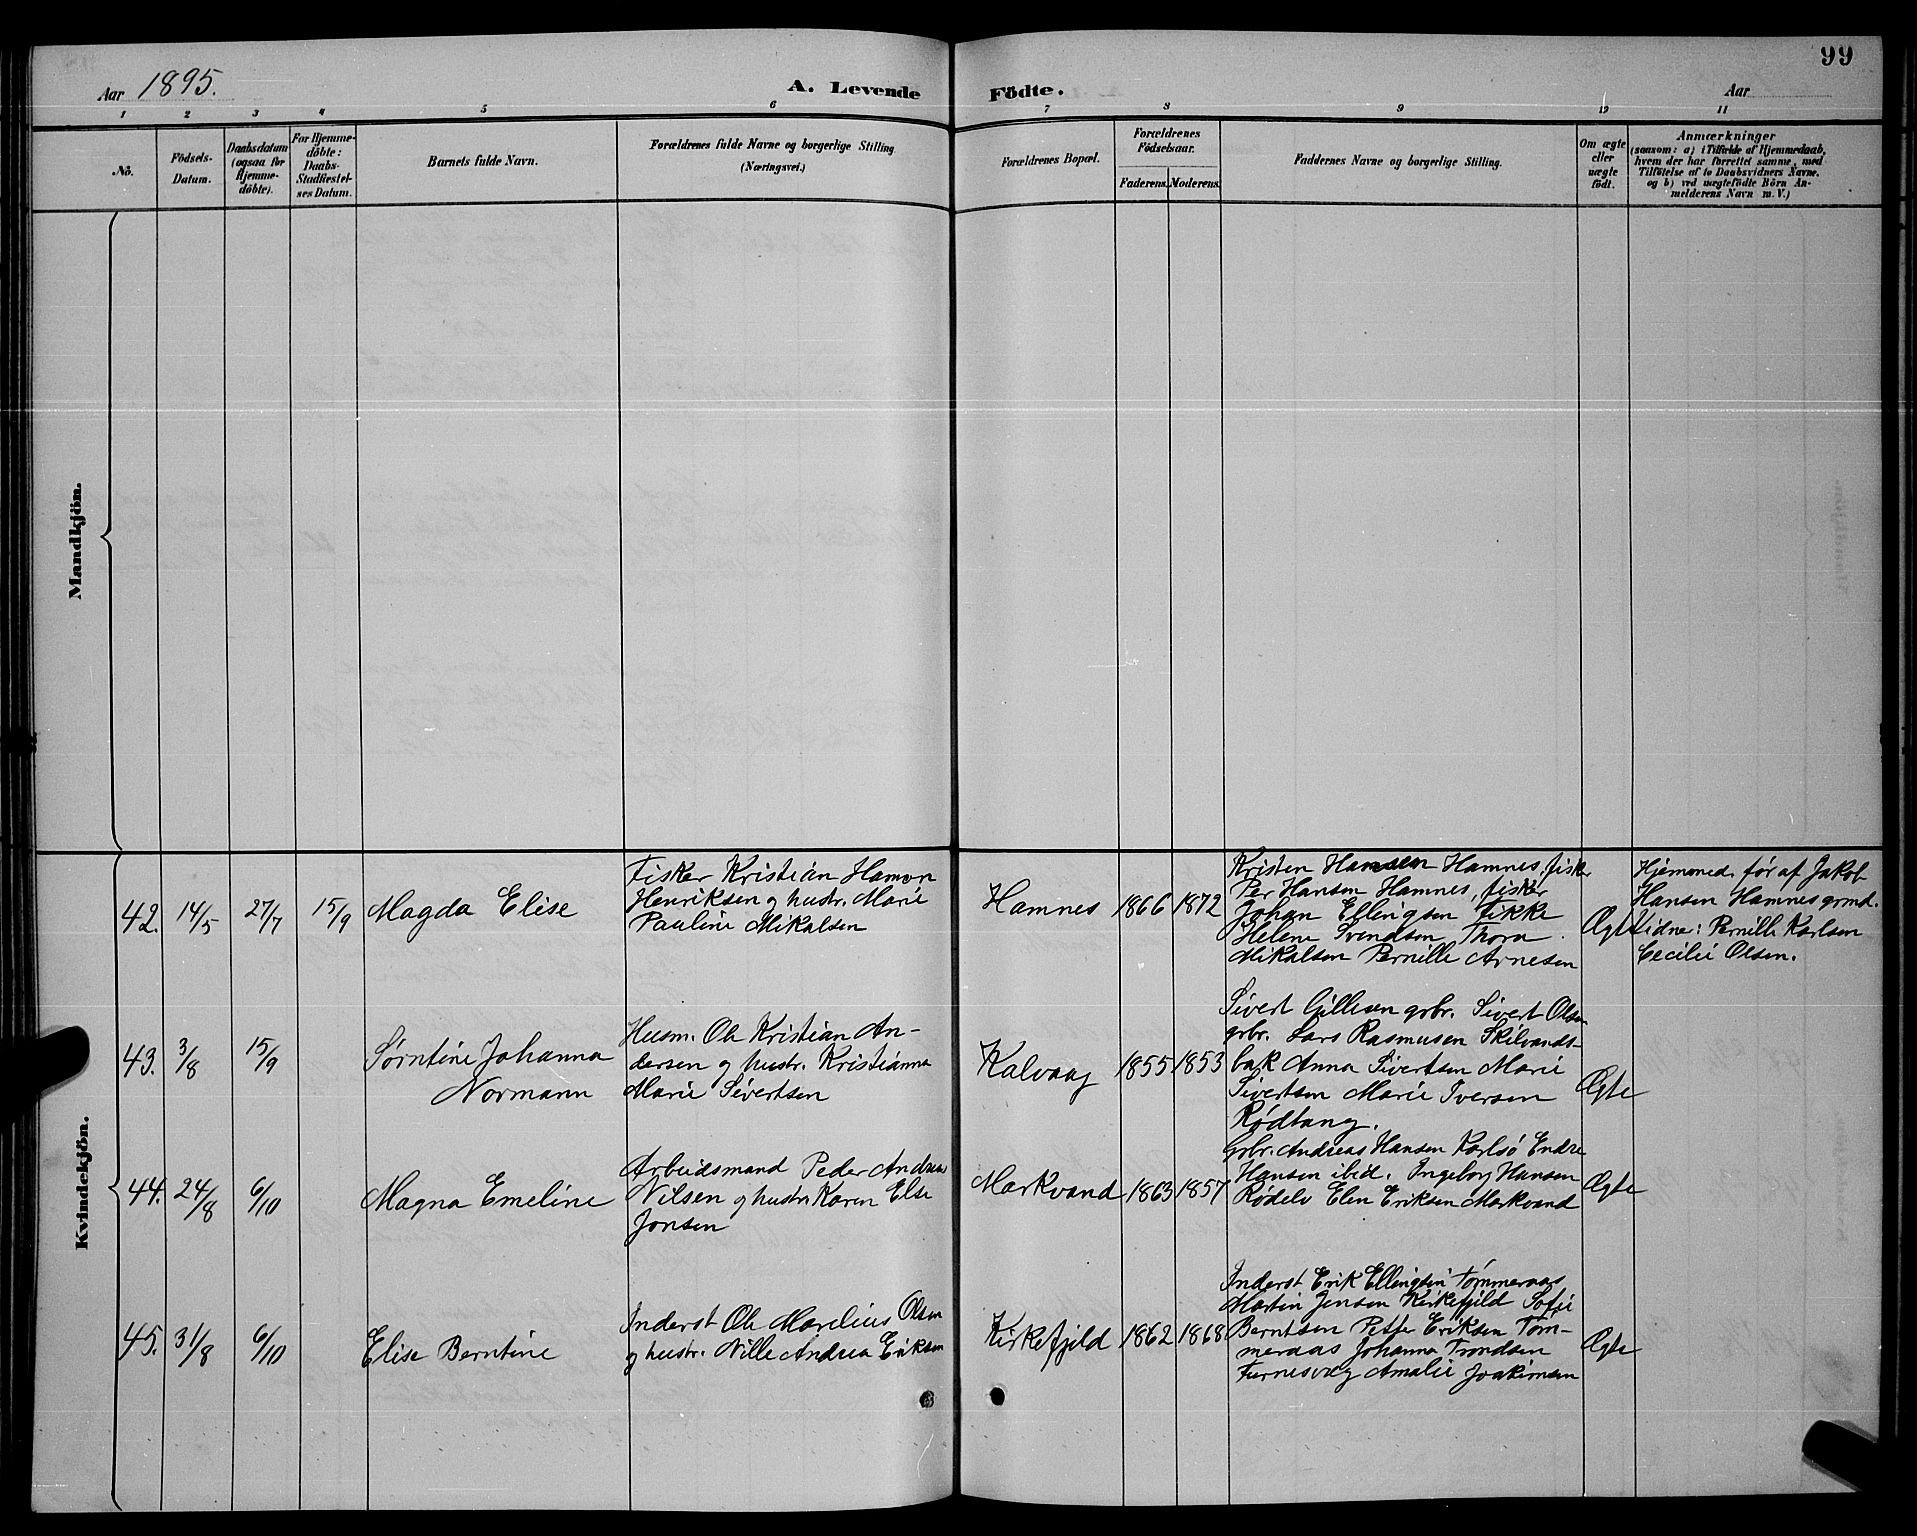 99
Aar 1895.
A. Levende
Födte.
Aar
1 2 3 4 5 6 7 8 9 10 11
No.
Födsels-
Datum.
Daabsdatum
(ogsaa for
Hjemme-
döbte).
For Hjemme-
döbte:
Daabs-
Stadfæstel-
ses Datum.
Barnets fulde Navn.
Forældrenes fulde Navne og borgerlige Stilling
(Næringsvei.)
Forældrenes Bopæl.
Forældrenes
Födselsaar.
Faderens. Moderens.
Faddernes Navne og borgerlige Stilling.
Om ægte
eller
uægte
födt.
Anmærkninger
(saasom: a) i Tilfælde af Hjemmedaab,
hvem der har forrettet samme, med
Tilföielse af to Daabsvidners Navne,
og b) ved uægtefödte Börn An-
melderens Navn m. V.)
Mandkjön.
Kvindekjön.
42. 14/5 27/7 15/9 Magda Elise
Fisker Kristian Hamon
Henriksen og hustr. Marie
Pauline Mikalsen
Hamnes 1866 1872
Kristen Hansen Hamnes, fisker
Per Hansen Hamnes, fisker
Johan Ellingsen Fikke
Helene Svendsen Thora
Mikalsen Pernille Arnesen
Ægte
Hjemmed. før af Jakob
Hansen Hamnes grmd.
Vidne: Pernille Karlsen
Cecilie Olsen.
43. 3/8 15/9 Sørntine Johanna
Normann
Husm. Ole Kristian An-
dersen og hustr. Kristianna
Marie Sivertsen
Kalvaag 1855 1853
Sivert grbr. Sivert Olsen
grbr. Lars Rasmusen Skilvands-
bak Anna Sivertsen Marie
Sivertsen Marie Iversen
Rødtang.
Ægte
44. 24/8 6/10 Magna Emeline
Arbeidsmand Peder Andreas
Nilsen og hustr. Karen Else
Jonsen
Markvand 1863 1857
Grbr. Andreas Hansen Karlsø Endre
Hansen ibid. Ingeborg Hansen
Rødelv Elen Eriksen Markvand
Ægte
45. 31/8 6/10 Elise Berntine
Inderst Ole Marelius Olsen
og hustr. Nille Andrea Eriksen
Kirkefjeld 1862 1868
Inderst Erik Ellingsen Tømmeraas
Martin Jensen Kirkefjeld Sofie
Berntsen Petter Eriksen Tøm-
meraas Johanna Trondsen
Furnesvæg Amalie Joakimsen
Ægte